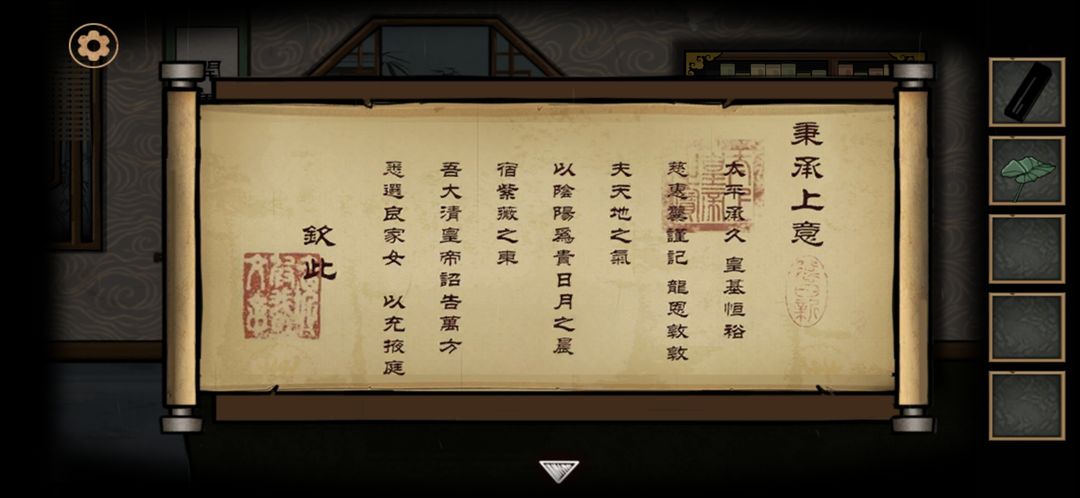 秉承上意
太平承久 皇基恒裕
慈惠龔謹記 龍恩敦敦
夫天地之氣
以陰陽爲貴日月之晨
宿紫薇之東
吾大清皇帝詔告萬方
悉選良家女 以充掖庭
欽此